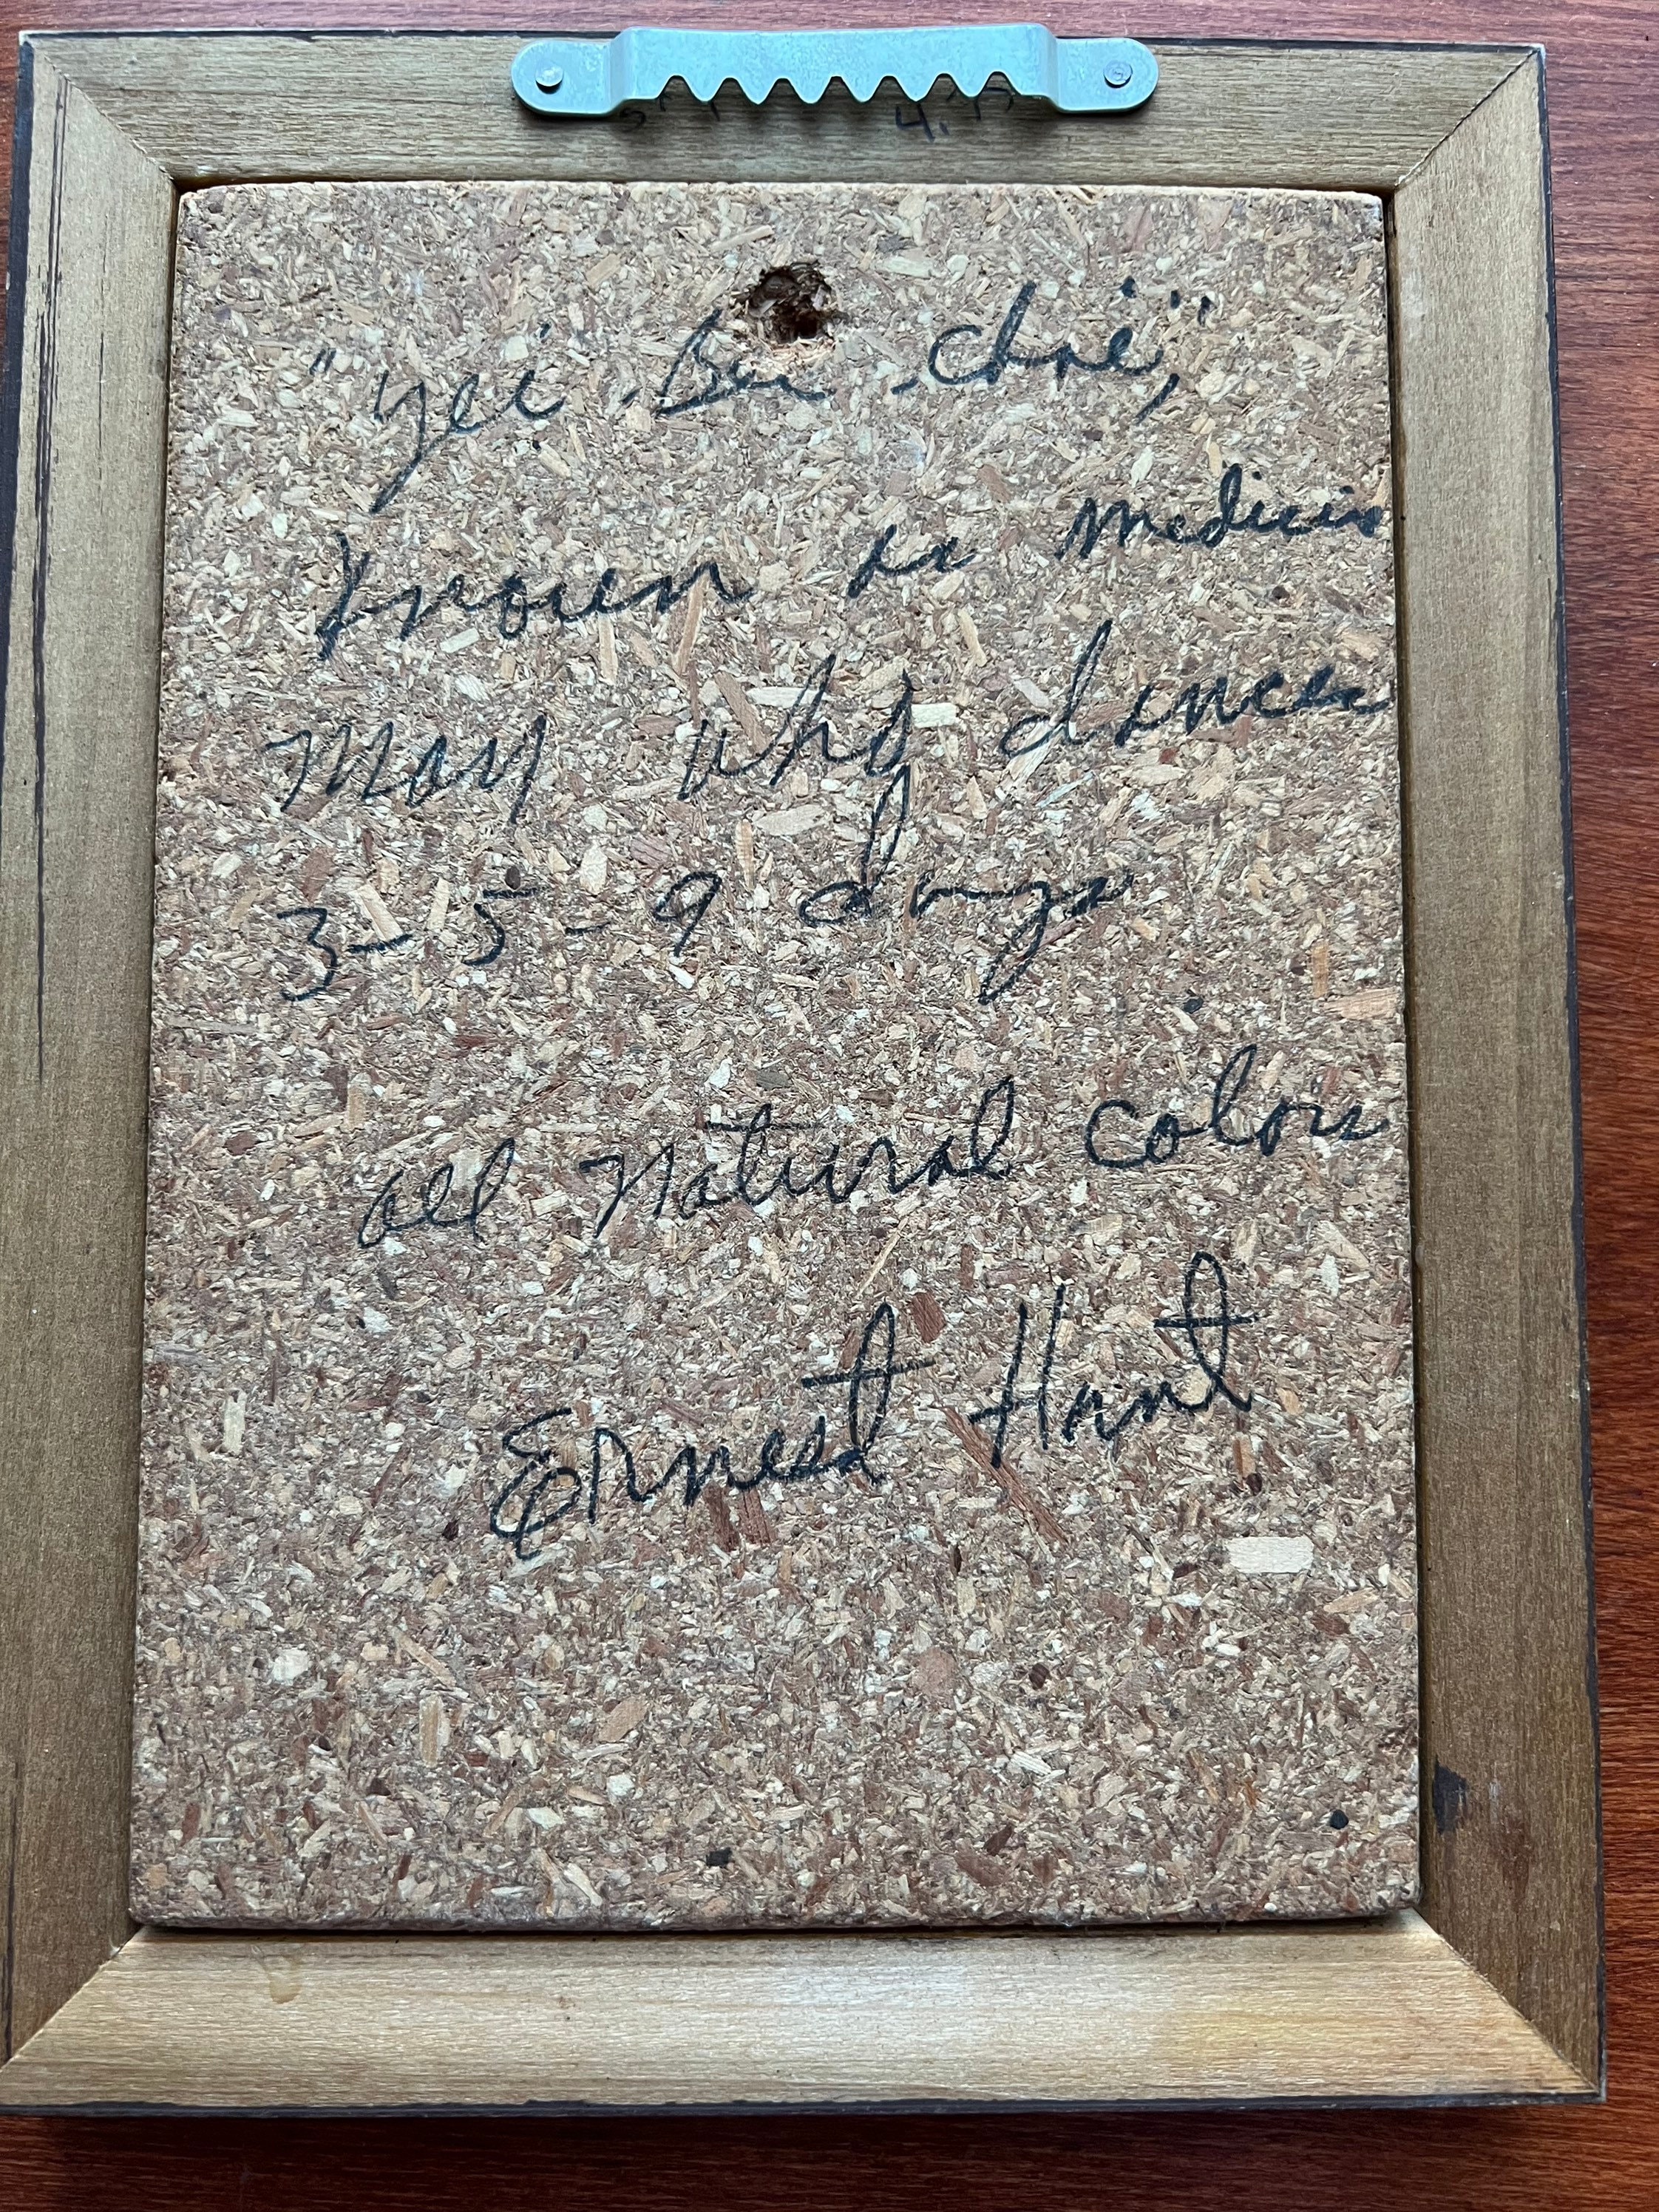 "Yei" Bei - Chai,"
Known as Medicin
Man who dances
3 - 5 - 9 days
all Natural Colors
Ernest Hunt